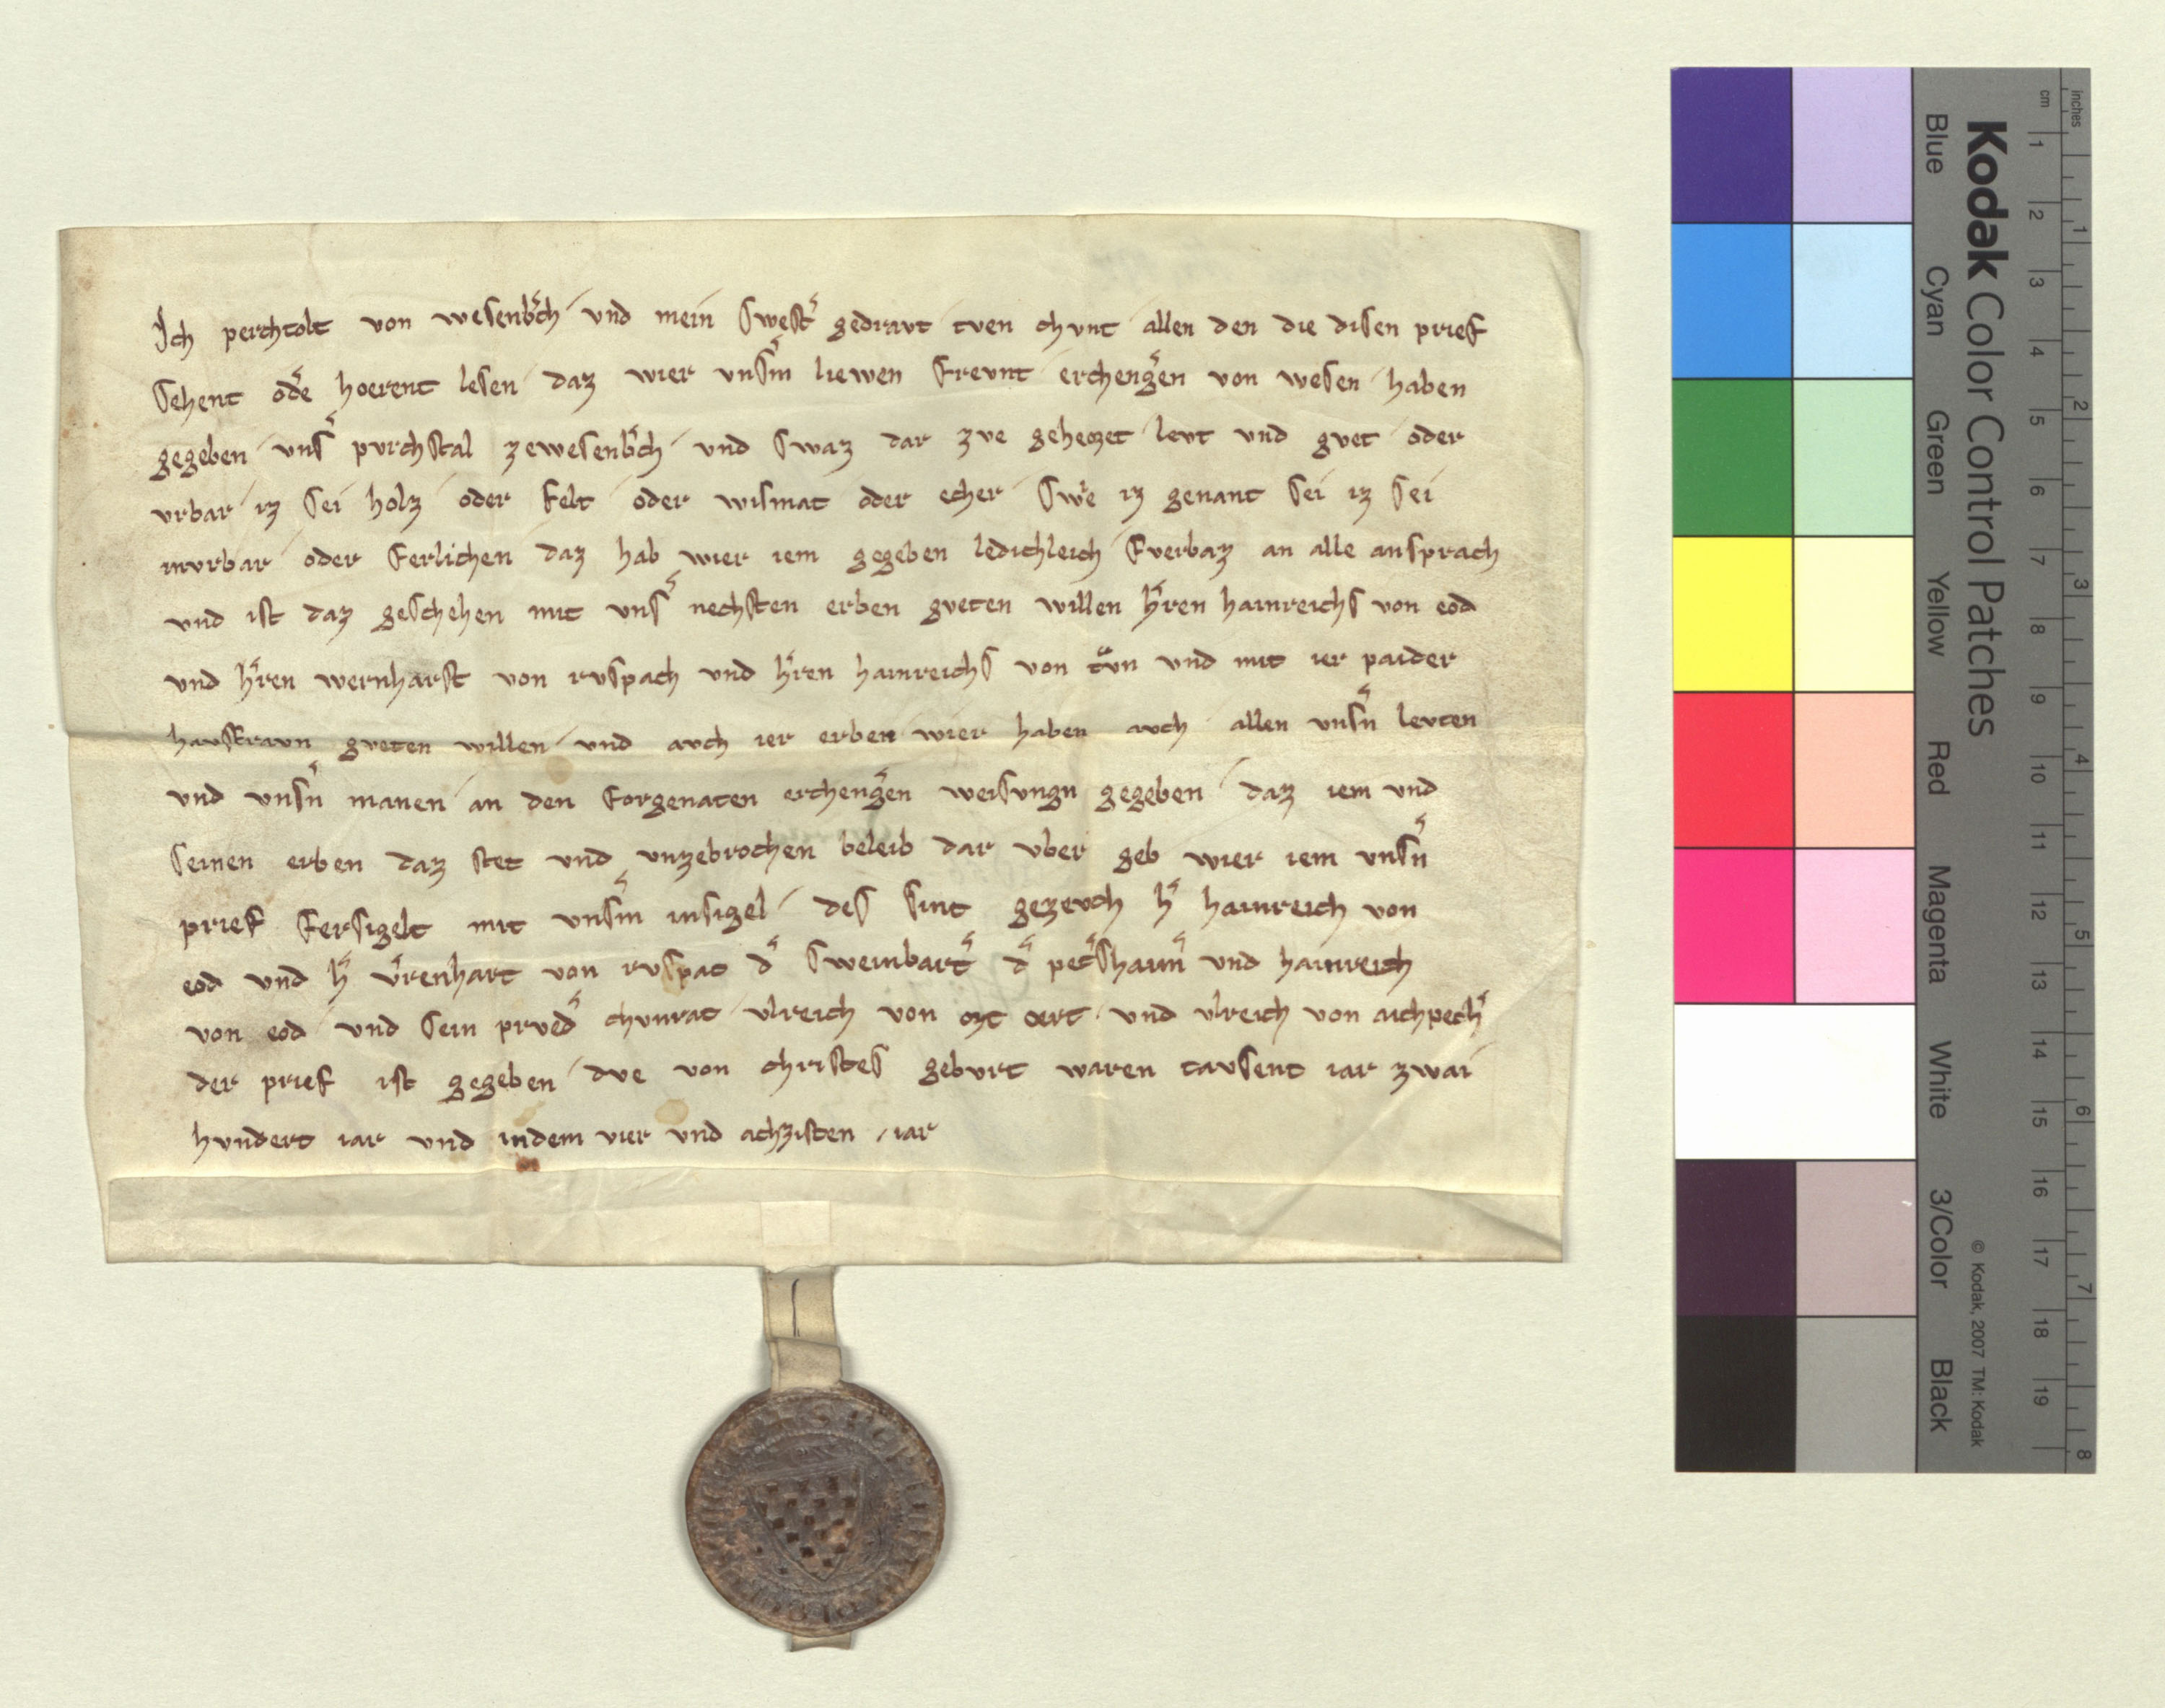 Ich perchtolt von wesenbͤch und mein swestͤ gedraut tuen chunt allen den die disen prief
sehent odͤe hoerent lesen daz wier unsͤm liewen freunt erchengͤen von wesen haben
gegeben unsͤ purchstal zewesenbͤch und swaz dar zue gehoezet leut und guet oder
urbar iz sei holz oder felt oder wismat oder echer swͤe iz genant sei iz sei
inurbar oder ferlichen daz hab wier iem gegeben ledichleich fuerbaz an alle ansprach
und ist daz geschehen mit unsͤ nechsten erben gueten willen hͤren hainreichs von eod
und hͤren wernharst von ruspach und hͤren hainreichs von tͤun und mit ier paider
hausfraun gueten willen und auch ier erben wier haben auch allen unsͤn leuten
und unsͤn manen an den forgenaten erchengͤen weisungn gegeben daz iem und
seinen erben daz stet und unzebrochen beleib dar uber geb wier iem unsͤn
prief fersigelt mit unsͤm insigel des sint gezeuch hͤ hainreich von
eod und hͤ vͤrenhart von ruspac dͤ sweinbartͤ dͤ petͤshaimͤ und hainreich
von eod und sein pruedͤ chunrat ulreich von ozt oert und ulreich von aichpechͤ
der prief ist gegeben due von christes geburt waren tausent iar zwai
hundert iar und indem vier und achzisten iar
Kodak Color Control Patches
Blue Cyan Green Yellow Red Magenta White 3/Color Black
© Kodak, 2007 TM: Kodak
cm 1 2 3 4 5 6 7 8 9 10 11 12 13 14 15 16 17 18 19
inches 1 2 3 4 5 6 7 8